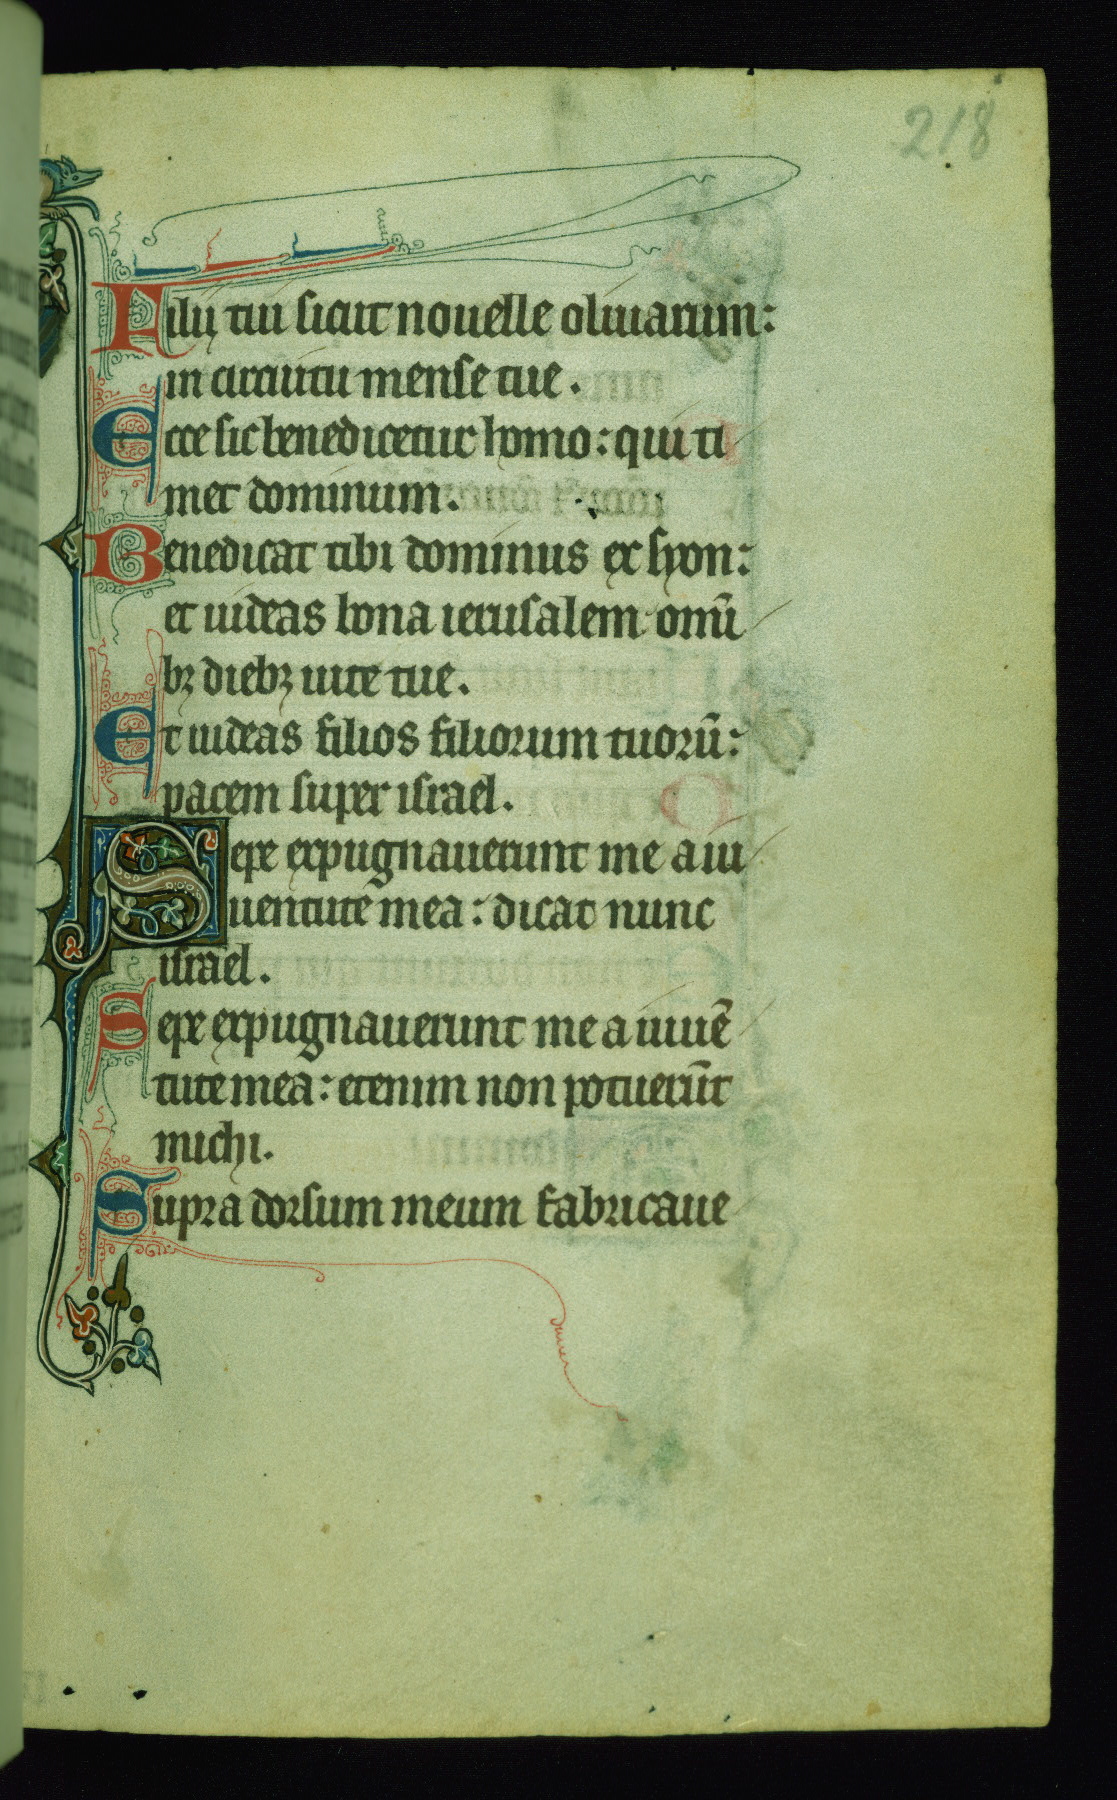 218
Filij tui sicut nouelle oliuarum:
in circuitu mense tue.
Ecce sic benedicetur homo: qui ti
met dominum.
Benedicat tibi dominus ex syon:
et uideas bona ierusalem omĩ
bꝫ diebꝫ uite tue.
Et uideas filios filiorum tuorũ:
pacem super israel.
Sepe expugnauerunt me a iu
uentute mea: dicat nunc
israel.
Sepe expugnauerunt me a iuuẽ
tute mea: etenim non potuerũt
michi.
Supra dorsum meum fabricaue